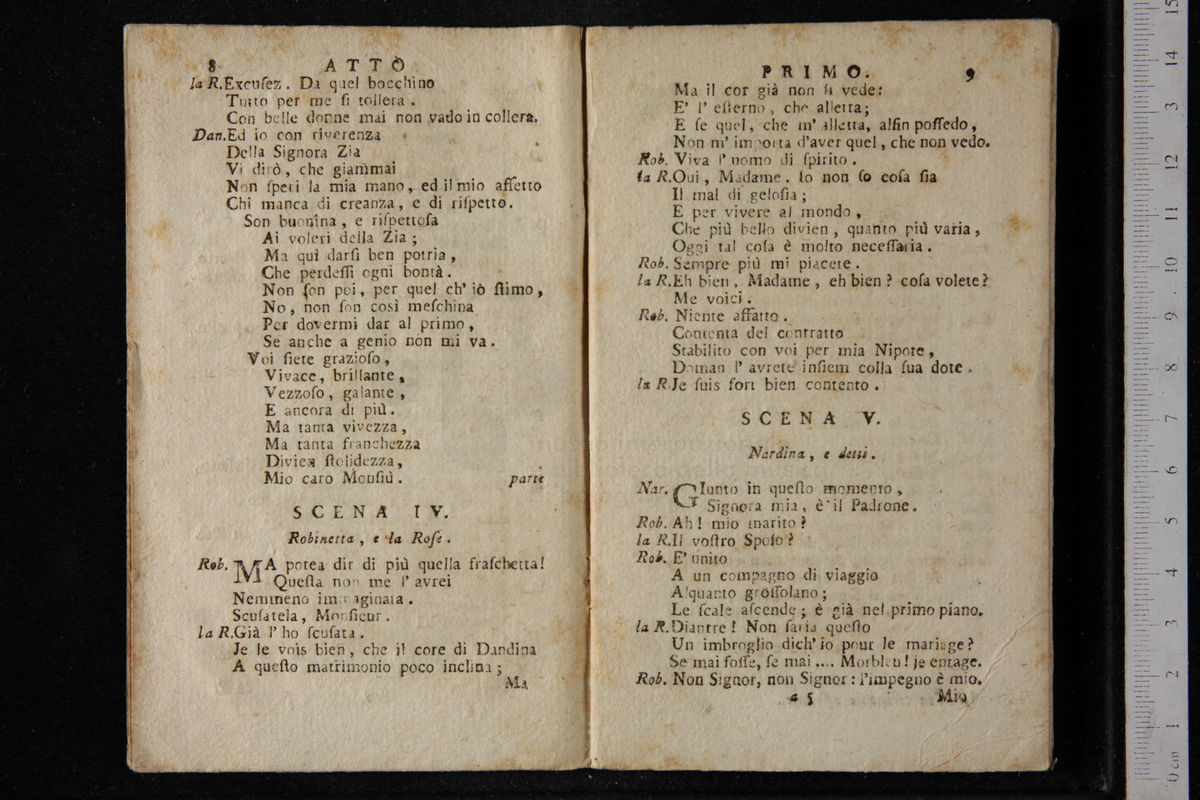 8 ATTO
la R.Excuſez. Da quel bocchino
Tutto per me ſi tollera.
Con belle donne mai non vado in collera.
Dan.Ed io con riverenza
Della Signora Zia
Vi dirò, che giammai
Non ſperi la mia mano, ed il mio affetto
Chi manca di creanza, e di riſpetto.
Son buonina, e riſpettoſa
Ai voleri della Zia;
Ma quì darſi ben potria,
Che perdeſſi ogni bontà.
Non ſon poi, per quel ch' iò ſtimo,
No, non ſon così meſchina
Per dovermi dar al primo,
Se anche a genio non mi va.
Voi ſiete grazioſo,
Vivace, brillante,
Vezzoſo, galante,
E ancora di più.
Ma tanta vivezza,
Ma tanta franchezza
Divien ſtolidezza,
Mio caro Monſiù. parte
SCENA IV.
Robinetta, e la Roſe.
Rob. MA potea dir di più quella fraſchetta!
Queſta non me l' avrei
Nemmeno immaginata.
Scuſatela, Monſieur.
la R.Già l' ho ſcuſata.
Je le vois bien, che il core di Dandina
A queſto matrimonio poco inclina;
Ma
PRIMO. 9
Ma il cor già non ſi vede:
E' l' eſterno, che alletta;
E ſe quel, che m' alletta, alfin poſſedo,
Non m' importa d'aver quel, che non vedo.
Rob. Viva l' uomo di ſpirito.
la R.Oui, Madame. Io non ſo coſa ſia
Il mal di geloſia;
E per vivere al mondo,
Che più bello divien, quanto più varia,
Oggi tal coſa è molto neceſſaria.
Rob. Sempre più mi piacete.
la R.Eh bien, Madame, eh bien? coſa volete?
Me voici.
Rob. Niente affatto.
Contenta del contratto
Stabilito con voi per mia Nipote,
Doman l' avrete inſiem colla ſua dote.
la R.Je ſuis fort bien contento.
SCENA V.
Nardina, e detti.
Nar. GIunto in queſto momento,
Signora mia, è il Padrone.
Rob. Ah! mio marito?
la R.Il voſtro Spoſo?
Rob. E' unito
A un compagno di viaggio
Alquanto groſſolano;
Le ſcale aſcende; è già nel primo piano.
la R.Diantre! Non ſaria queſto
Un imbroglio dich' io pour le mariage?
Se mai foſſe, ſe mai .... Morbleu! je enrage.
Rob. Non Signor, non Signor: l'impegno è mio.
a 5 Mio